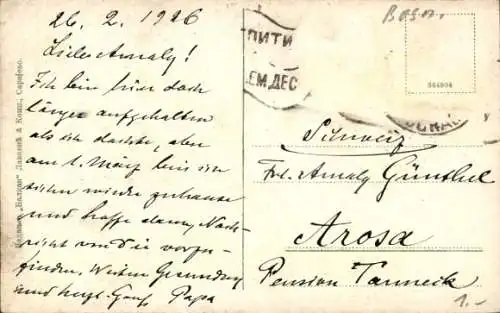 26. 2. 1926
Liebe Amaly!
Ich bin hier doch
länger aufgehalten
als ich dachte, aber
am 1. März bin ich
sicher wieder zuhause
und hoffe dann, Nach-
richt von Dir vorzu-
finden. Weitere Genesung
und herzl. Gruß Papa
"Балкан" Сарајево.
ПИТИ
ЕМ.ДЕС
Bosn.
364904
Schweiz
Frl. Amaly Günthel
Arosa
Pension Tanneck
1.-